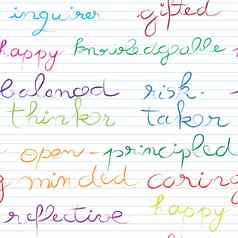 inquirer gifted
happy knowledgeable
balanced risk-
thinker taker
open-principled
g minded caring
reflective happy